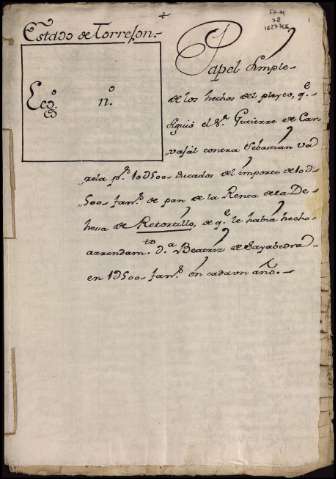 Estado de Torrejon.
Leg.º n.º
Papel simple
de los hechos del pleyto, q.e
siguió el S.r Gutierre de Car
vajál contra Sebastian Va
rela p.r 10500 ducados del importe de 10
500 fan.s de pan de la Renta de la De
hesa de Retortillo, de q.e le habia hecho
arrendam.to d.a Beatriz de Sayabedra
en 10500 fan.s en cada un año.